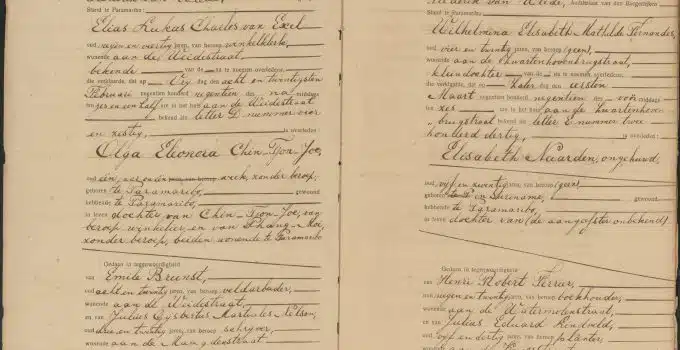 Stand te Paramaribo:
Elias Lukas Charles van Exel
oud negen en veertig jaren, van beroep winkelklerk,
wonende aan de Weidestraat
bekende van de na te noemen overledene,
die verklaarde, dat op Vrydag den acht en twintigsten
Februari negentien honderd negentien des na middags
ten zes en half ure in het huis aan de Weidestraat
bekend als letter D nummer vier
en zestig, is overleden:
Olga Elionora Chin-Tjon-Joe,
oud één week, zonder beroep,
geboren te Paramaribo, gewoond
hebbende te Paramaribo,
in leven dochter van Chin-Tjon-Joe, van
beroep winkelier, en van
zonder beroep, beiden wonende te Paramaribo
Gedaan in tegenwoordigheid
van Emile Brunst,
oud acht en twintig jaren, van beroep veldarbeider,
wonende aan de Weidestraat,
en van Julius Eysbertus Martinus Nelson,
oud drie en twintig jaren, van beroep schryver,
wonende aan de Maagdenstraat
Ambtenaar van den Burgerlijken
Stand te Paramaribo:
Wilhelmina Elisabeth Mathilde Fernandes,
oud vier en twintig jaren, van beroep (geen),
wonende aan de Zwartenhovenbrugstraat,
kleindochter van de na te noemen overledene,
die verklaarde, dat op Zaterdag den eersten
Maart negentien honderd negentien des voormiddags
ten zes ure in het huis aan de Zwartenhoven
brugstraat bekend als letter E nummer twee
honderd dertig, is overleden:
Elisabeth Naarden, ongehuwd,
oud vyf en zeventig jaren, van beroep (geen)
geboren te in Suriname, gewoond
hebbende te Paramaribo,
in leven dochter van (de aangeefster onbekend)
Gedaan in tegenwoordigheid
van Henri Robert Ferrier,
oud negen en twintig jaren, van beroep boekhouder,
wonende aan de Watermolenstraat,
en van Julius Eduard
oud vyf en dertig jaren, van beroep planter,
wonende aan de